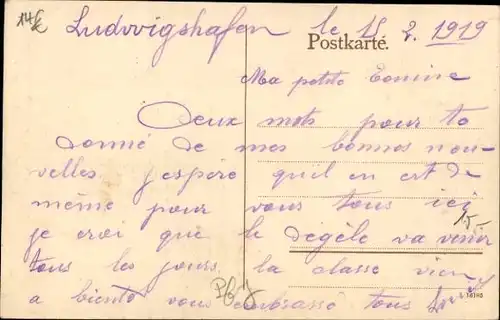 14€
Ludwigshafen le 18 2. 1919
Postkarte.
Ma petite
Deux mots pour te
donné de mes bonnes nou-
velles j'espère qu'il en est de
même pour vous tous ici
je croi que le dégèle va venir
tous les jours. la classe vien
a biento vous embrasse tous